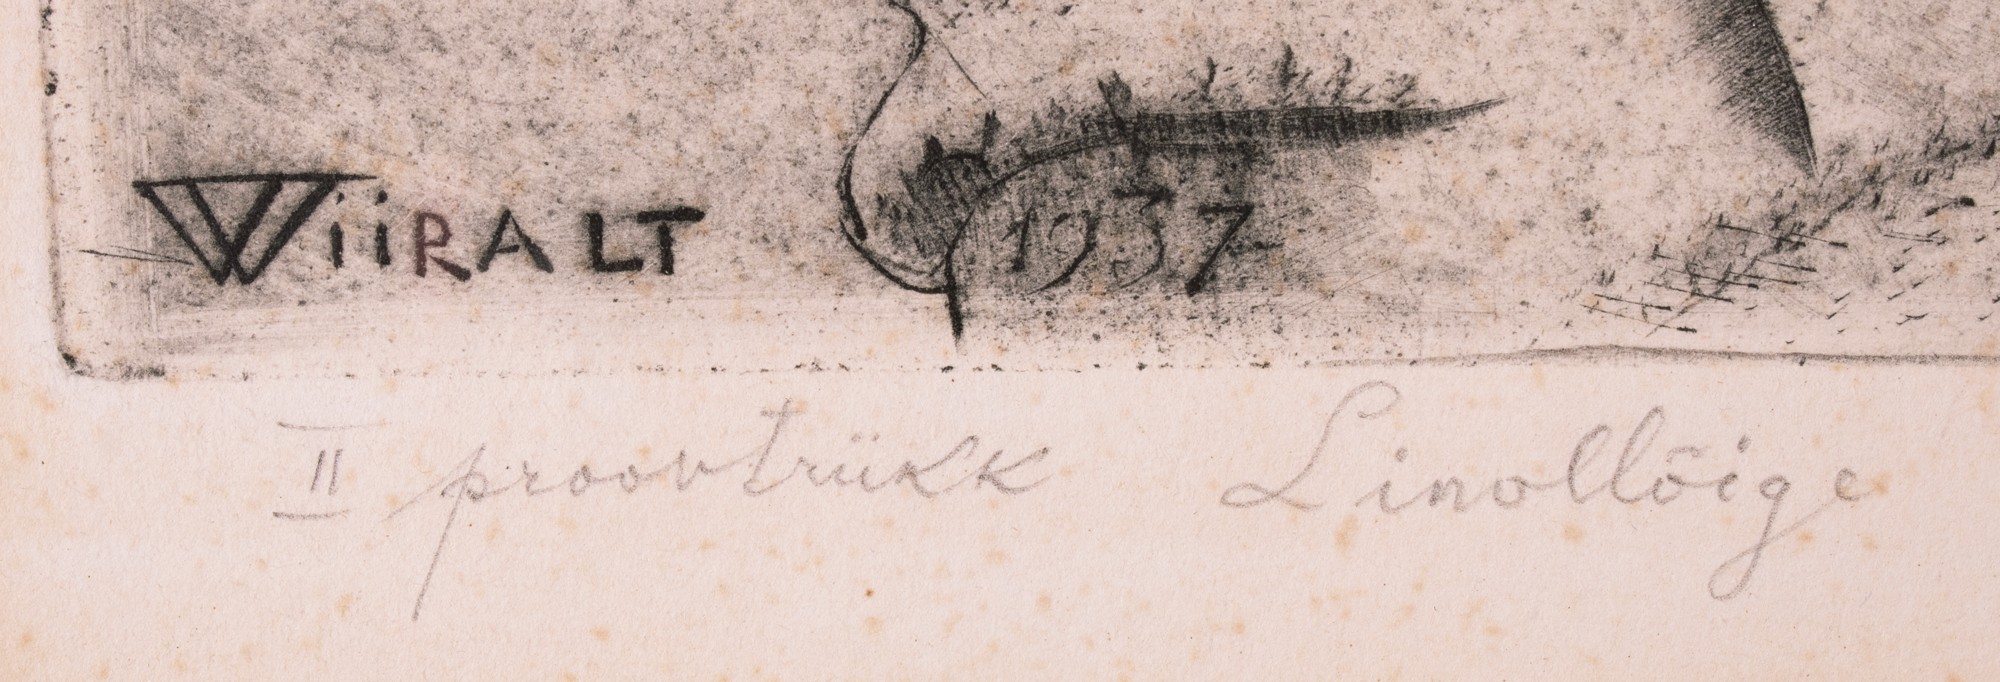 WiiRALT 1937
II proovtrükk Linollõige